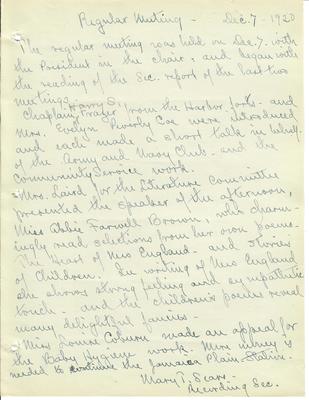 Regular Meeting - Dec. 7 - 1920
The regular meeting was held on Dec. 7. with
the President in the chair, and began with
the reading of the Sec. report of the last two
meetings. Harry S.
Chaplain Frazer from the Harbor forts - and
Mrs. Evelyn Peverly Coe were introduced
and each made a short talk in behalf
of the Army and Navy Club - and the
Community Service work.
Mrs. Laird for the Literature Committee
presented the speaker of the afternoon,
Miss Abbie Farwell Brown, who charm-
ingly read selections from her own poems -
The Heart of New England - and stories
of Children. In writing of New England
she shows strong feeling and sympathetic
touch - and the children's poems reveal
many delightful fancies.
Miss Louise Coburn made an appeal for
the Baby Hygiene work. More money is
needed to continue the Jamaica Plain Station.
Mary T. Sears -
Recording Sec.